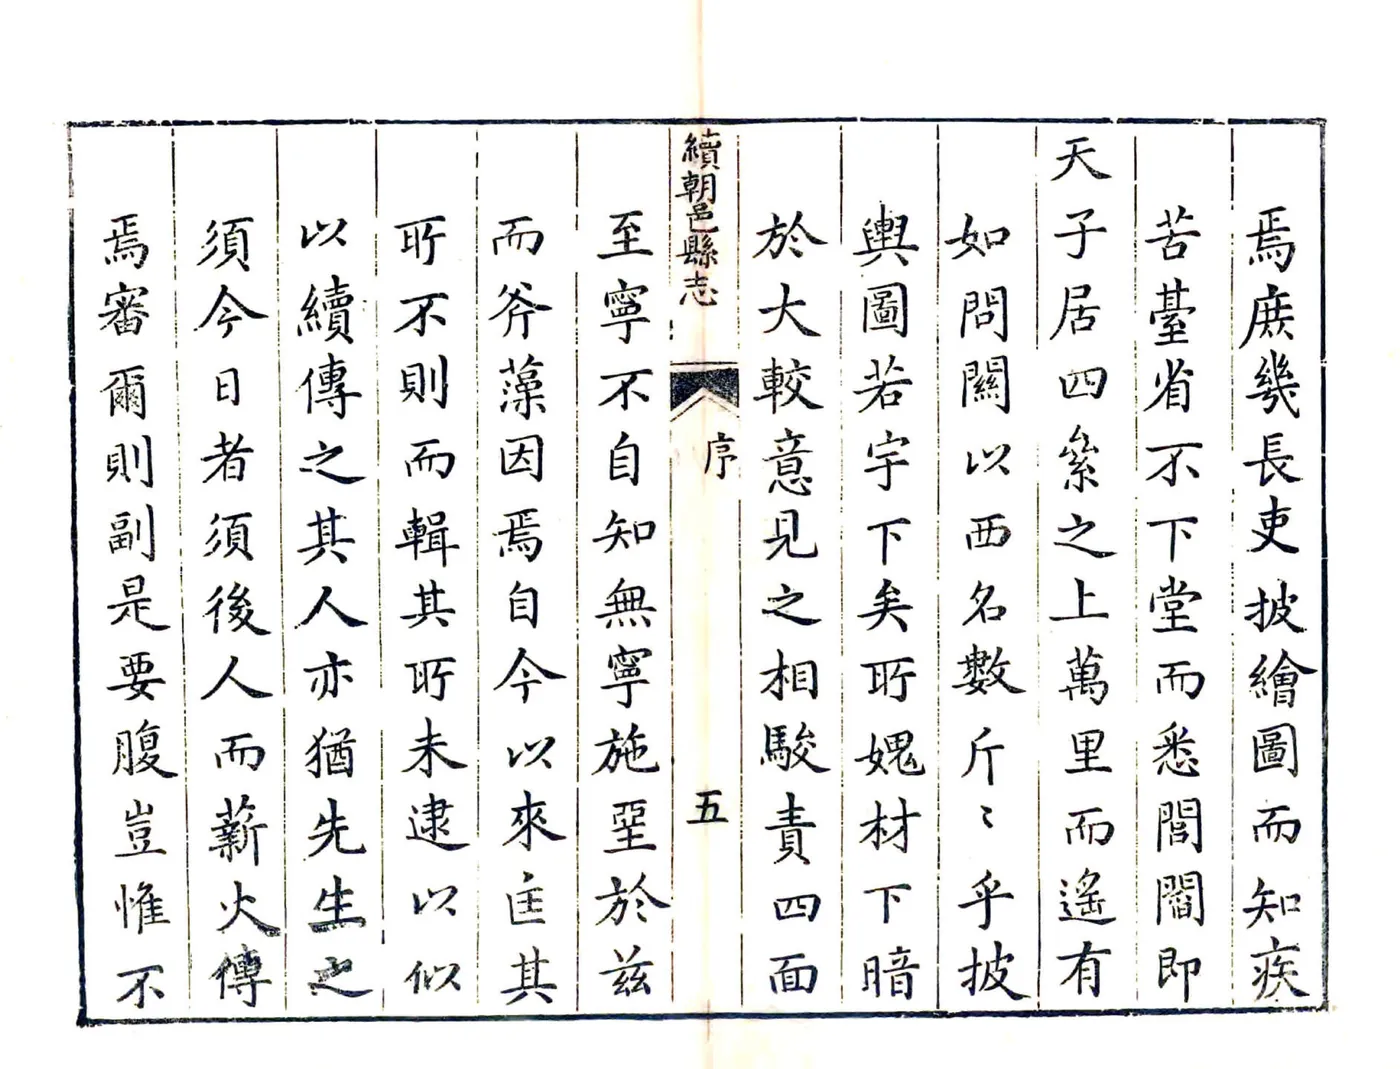 焉庶幾長吏披繪圖而知疾
苦臺省不下堂而悉閭閻即
天子居四絫之上萬里而遙有
如問關以西名數斤〻乎披
輿圖若宇下矣所媿材下暗
於大較意見之相駮責四面
續朝邑縣志
序
五
至寧不自知無寧施堊於茲
而斧藻因焉自今以來匡其
所不則而輯其所未逮以似
以續傳之其人亦猶先生之
須今日者須後人而薪火傳
焉審爾則副是要腹豈惟不